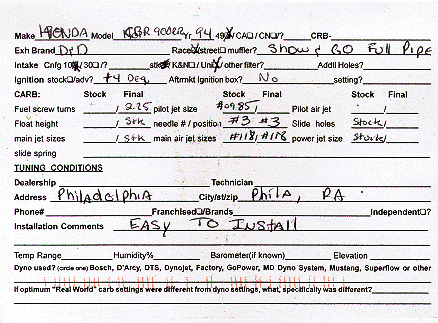 Make HONDA Model CBR 900RR Yr 94 49/CA□/CN□/? CRB-
Exh Brand D&D Race/street□ muffler? Show & GO Full PIPE
Intake Cnfg 10/ 30□/? stk K&N□/ Uni other filter? Addtl Holes?
Ignition stock□/adv? +4 Deg Aftrmkt Ignition box? No setting?
CARB: Stock Final Stock Final Stock Final
Fuel screw turns / 2.25 pilot jet size #0985/ Pilot air jet /
Float height / Stk needle # / position #3 / #3 Slide holes Stock/
main jet sizes / Stk main air jet sizes #118/ #118 power jet size Stock/
slide spring
TUNING CONDITIONS
Dealership Technician
Address PhiladelphiA City/st/zip Phila, PA
Phone# Franchised□/Brands Independent□?
Installation Comments EASY TO INStall
Temp Range Humidity% Barometer(if known) Elevation
Dyno used? (circle one) Bosch, D'Arcy, DTS, Dynojet, Factory, GoPower, MD Dyno System, Mustang, Superflow or other
If optimum "Real World" carb settings were different from dyno settings, what, specifically was different?